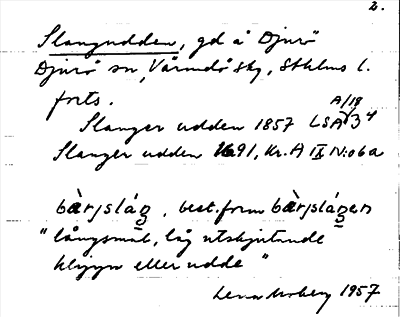 2.
Slangudden, gd å Djurö
Djurö sn, Värmdö skg, Sthlms l.
forts.
A/18
Slanger udden 1857 LSA 34
Slanger udden 1691, Kr. A IX N:o 6a
bàrjslág, best. form bàrjslágen
" långsmal, låg utskjutande
klipp eller udde "
Lena Moberg 1957